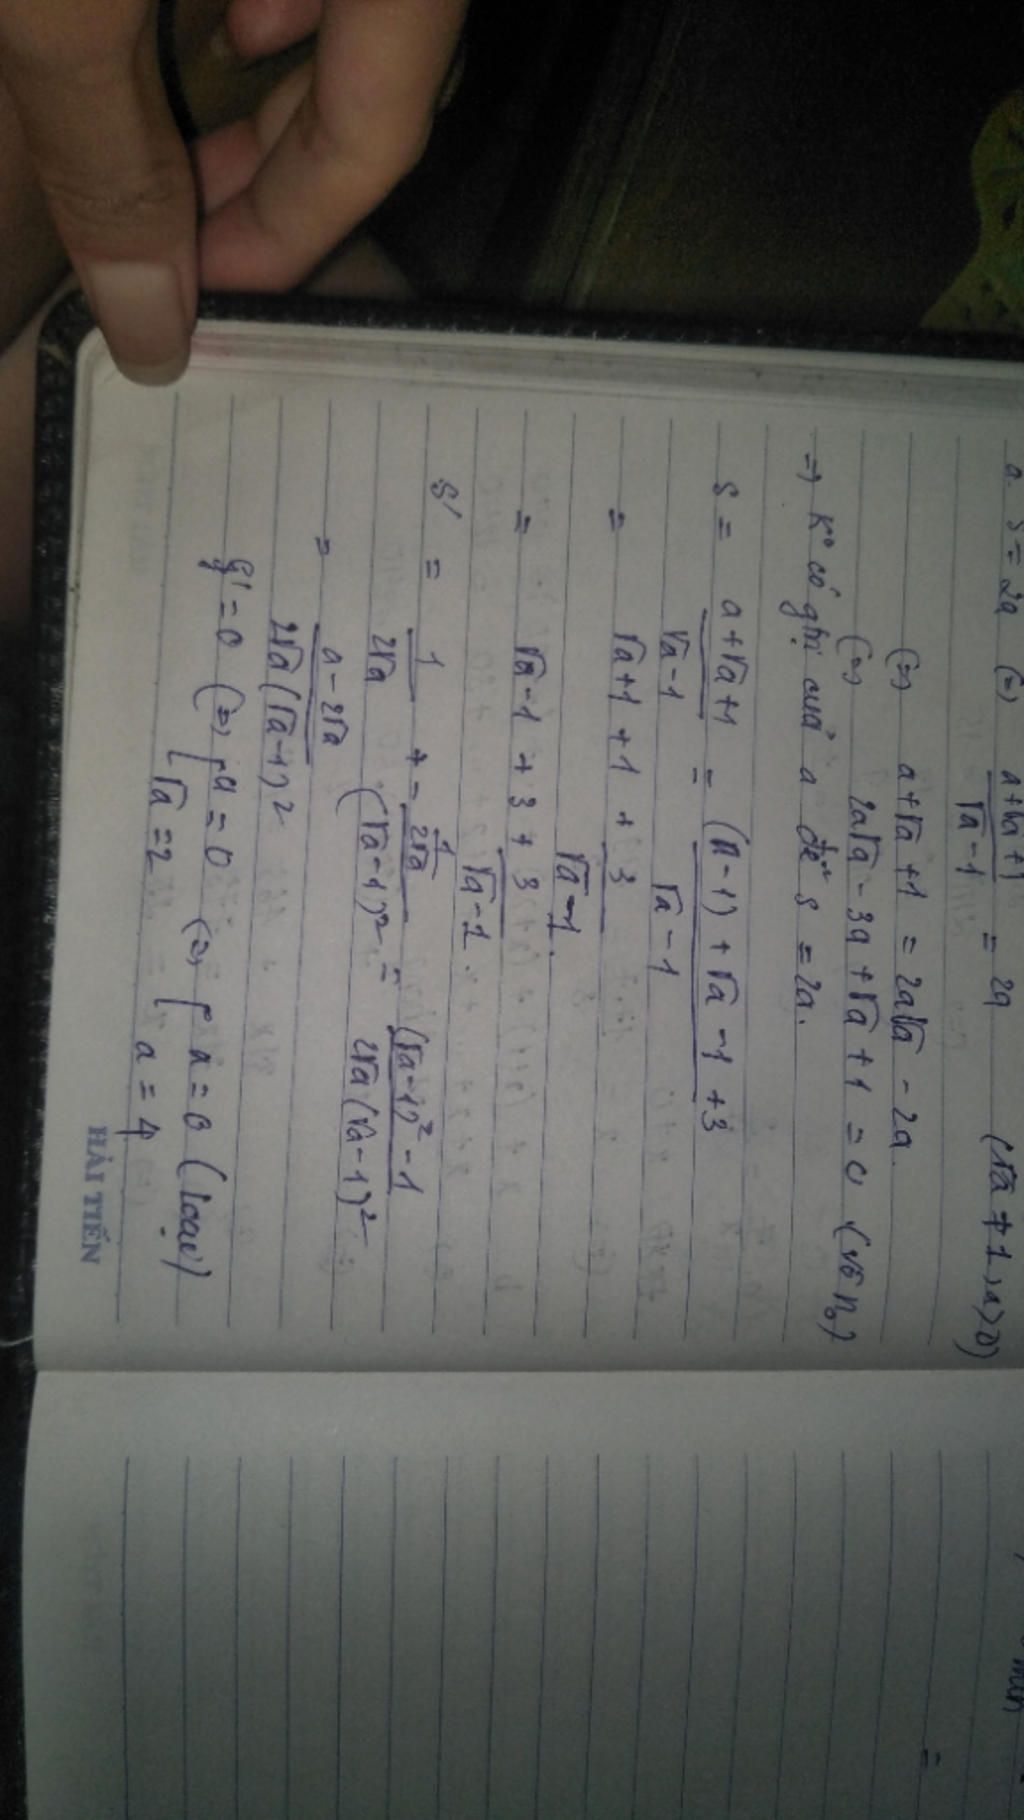 a. S = 2a (=) a+√a+1 / √a-1 = 2a (√a ≠ 1, a>0)
(=) a+√a+1 = 2a√a - 2a
(=) 2a√a - 3a + √a + 1 = 0 (vô n0)
=> K° có gtrị của a để S = 2a.
S = a+√a+1 / √a-1 = (a-1) + √a - 1 + 3 / √a - 1
= √a+1 + 1 + 3 / √a-1
= √a-1 + 3 + 3 / √a-1.
S' = 1 / 2√a + - 1/2√a / (√a-1)² = (√a-1)² - 1 / 2√a(√a-1)²
= a - 2√a / 2√a(√a-1)²
S' = 0 (=) [ a = 0 (=) [ a = 0 (loại)
√a = 2 a = 4
HẢI TIẾN
min
=